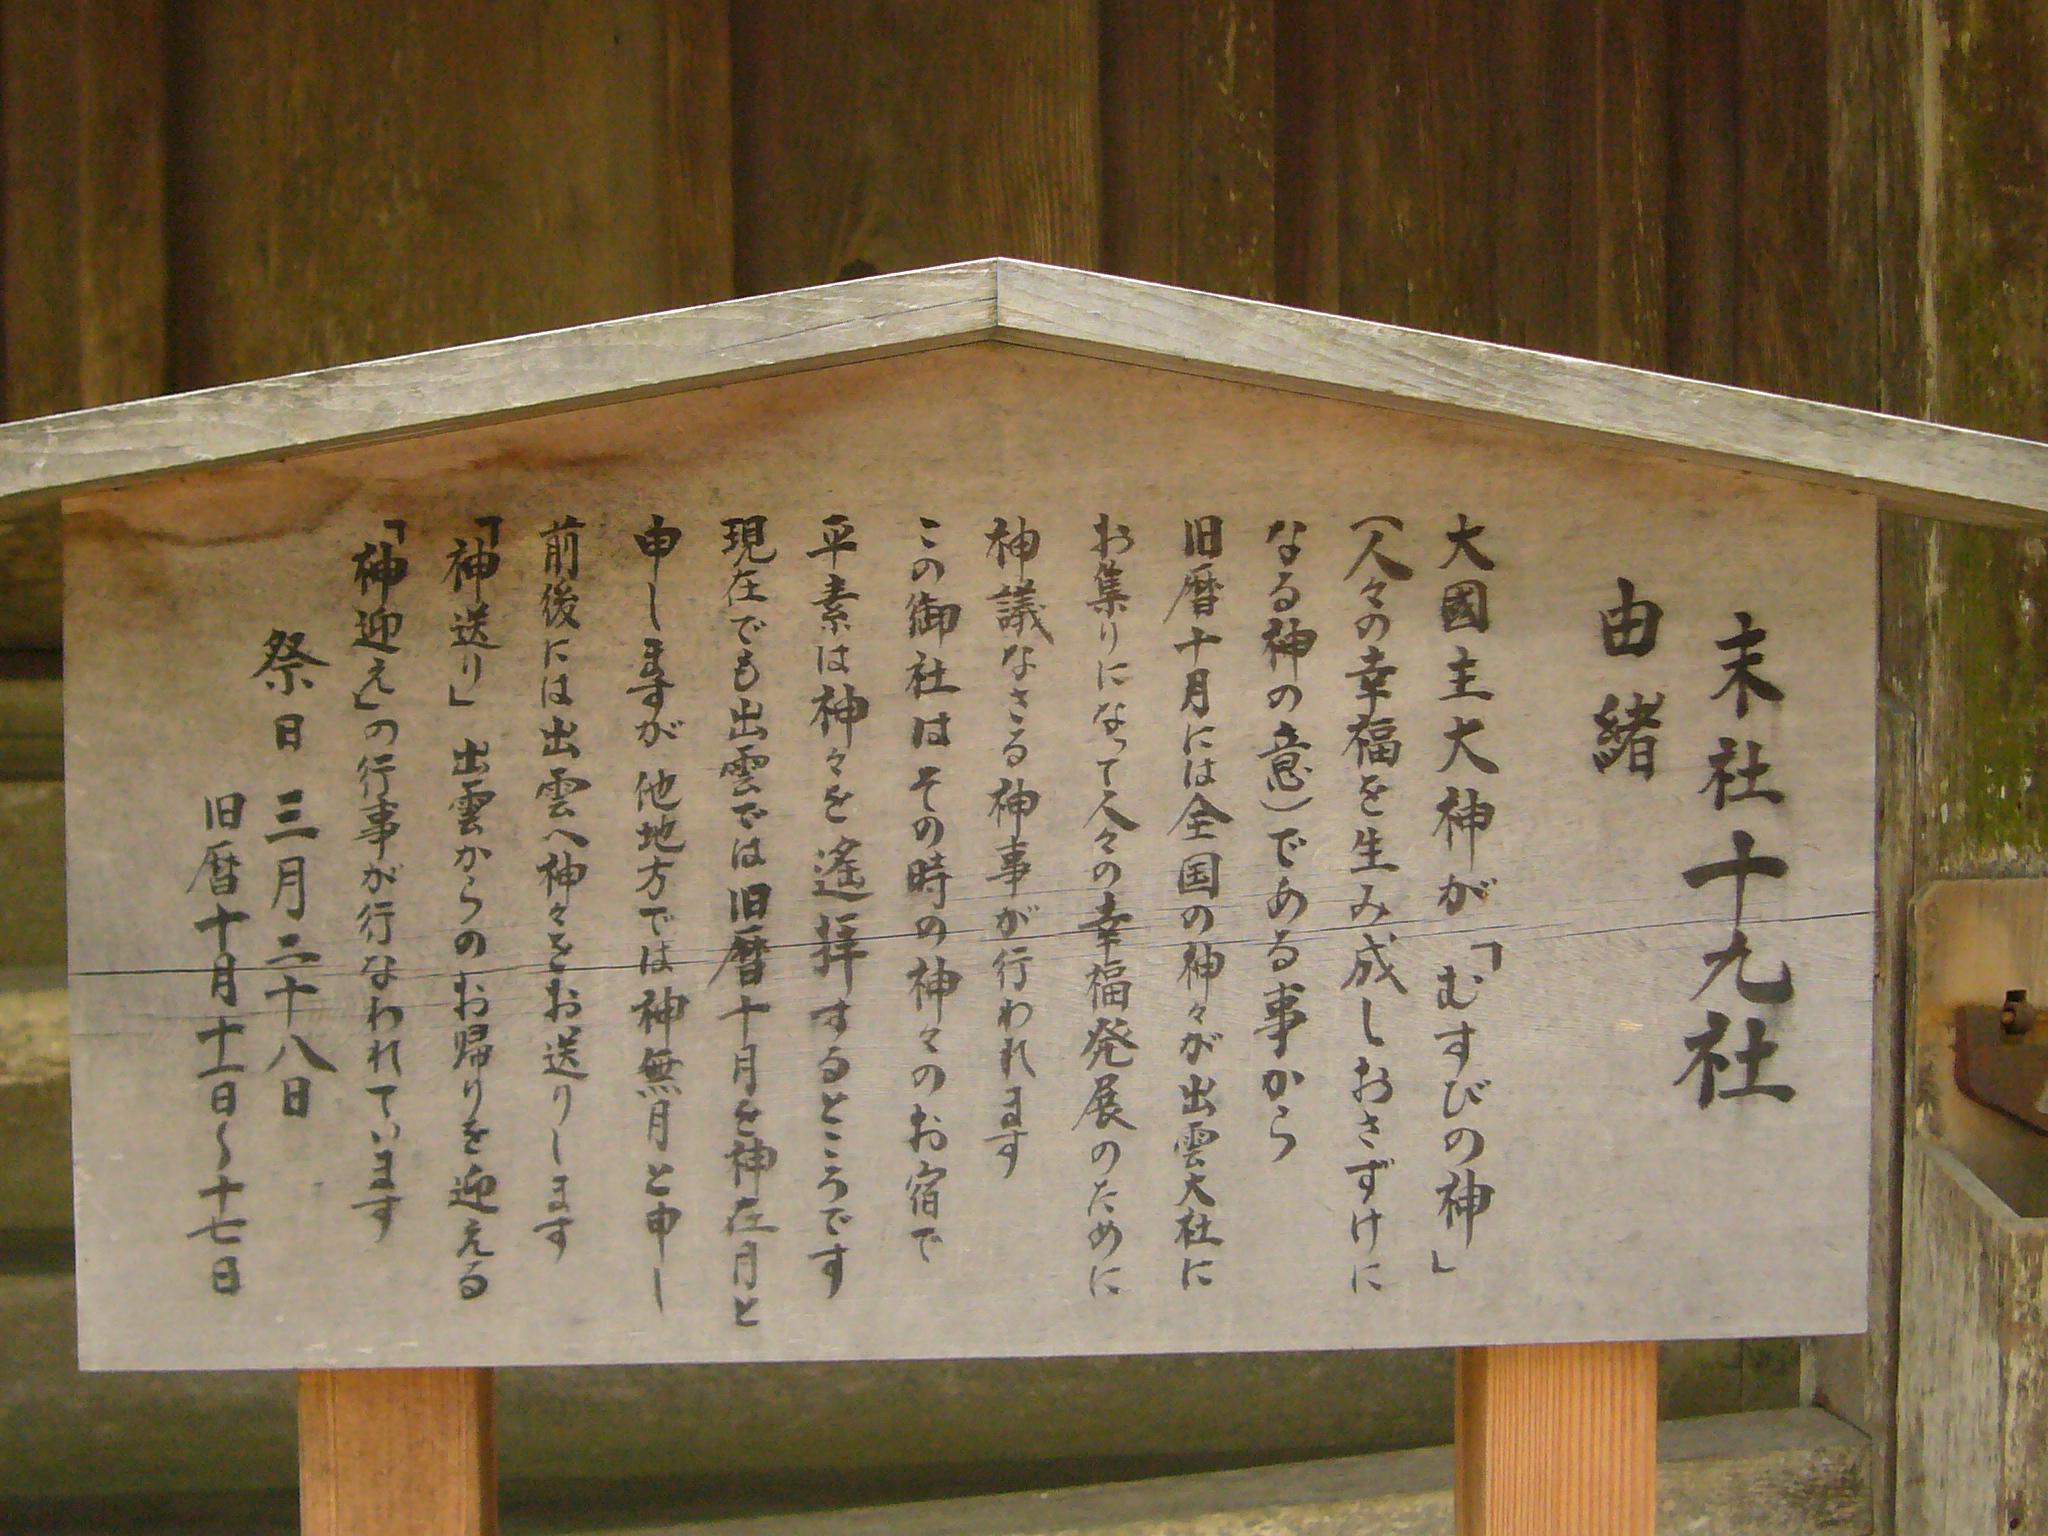 末社十九社
由緒
大國主大神が「むすびの神」
(人々の幸福を生み成しおさずけに
なる神の意)である事から
旧暦十月には全国の神々が出雲大社に
お集りになって人々の幸福発展のために
神議なさる神事が行われます
この御社はその時の神々のお宿で
平素は神々を遙拝するところです
現在でも出雲では旧暦十月を神在月と
申しますが他地方では神無月と申し
前後には出雲へ神々をお送りします
「神送り」出雲からのお帰りを迎える
「神迎え」の行事が行なわれています
祭日 三月二十八日
旧暦十月十一日〜十七日